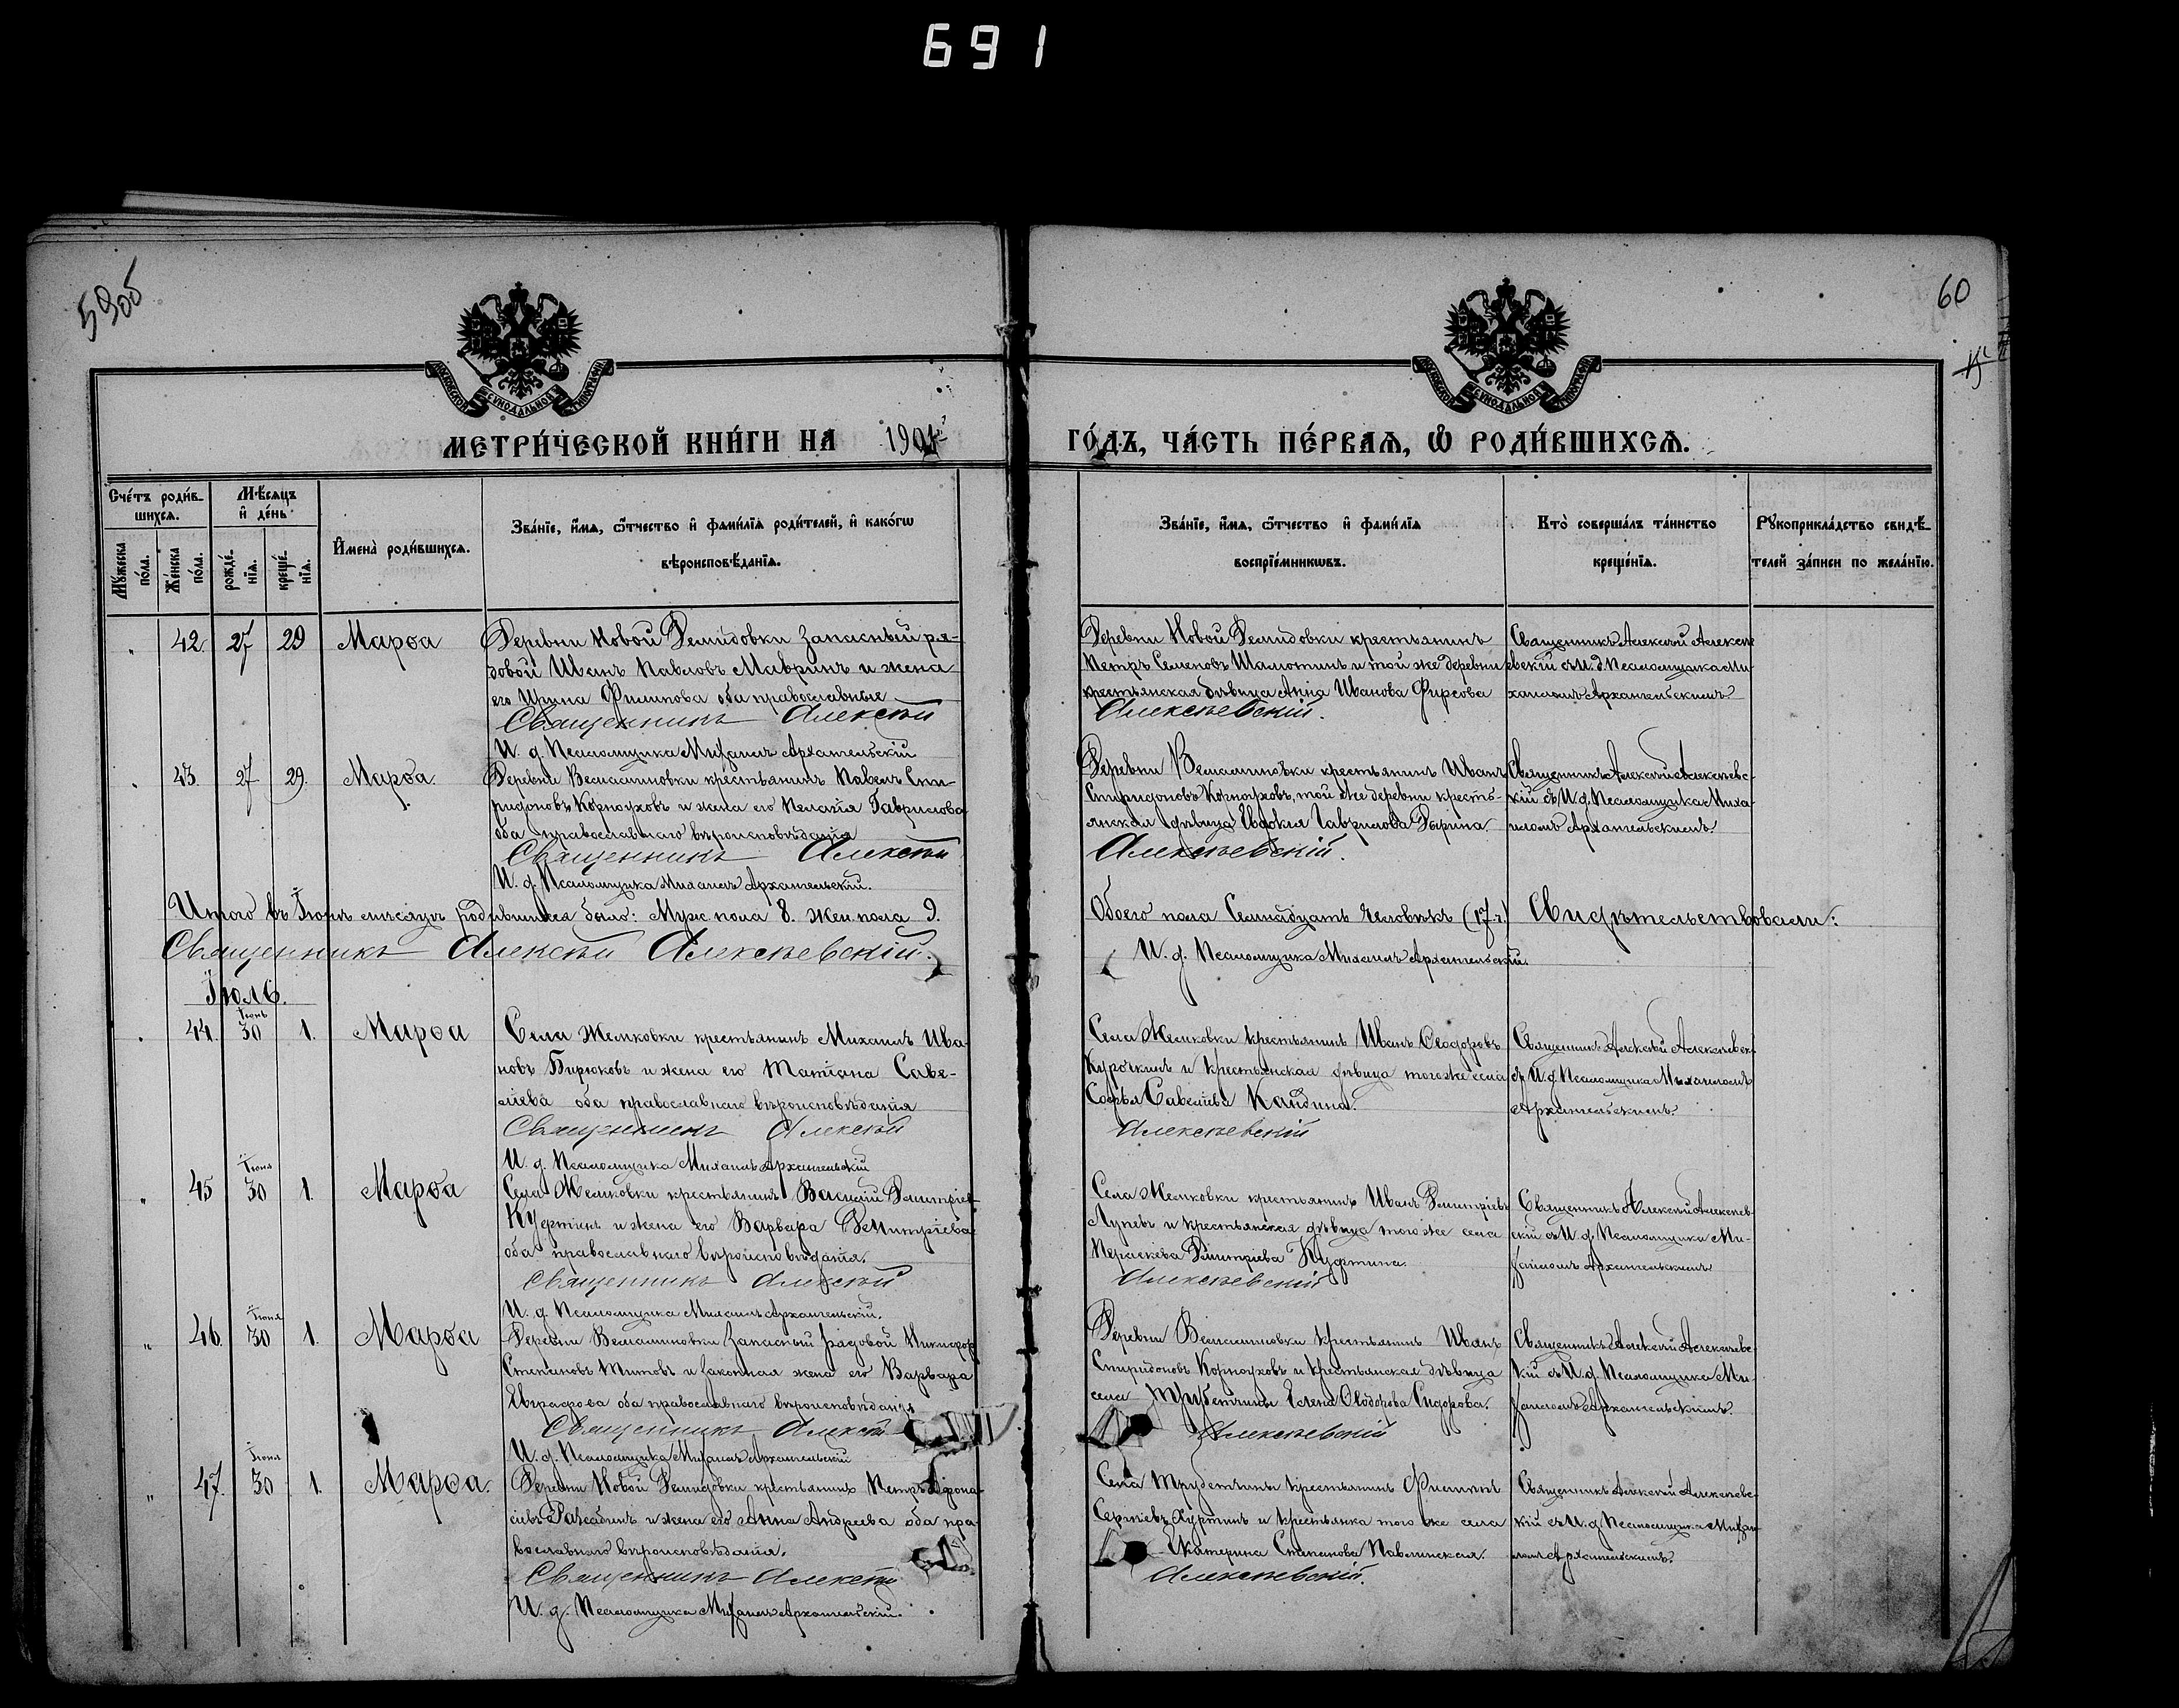 691
59об
60
МЕТРИ́ЧЕСКОЙ КНИ́ГИ НА 1904
ГО́ДЪ, ЧА́СТЬ ПЕ́РВАѦ, Ѡ РОДИ́ВШИХСѦ.
Сче́тъ роди́в-
шихсѧ.
Мѣ́сѧцъ
и҆ де́нь
Мꙋ́жеска
по́ла.
Же́нска
по́ла.
рожде́-
нїѧ.
креще́-
нїѧ.
И҆мена̀ роди́вшихсѧ.
Зва́нїе, и҆́мѧ, ѻ҆́тчество и҆ фами́лїѧ роди́телей, и҆ како́гѡ
вѣроисповѣ́данїѧ.
Зва́нїе, и҆́мѧ, ѻ҆́тчество и҆ фами́лїѧ
воспрїе́мникѡвъ.
Кто̀ соверша́лъ та́инство
креще́нїѧ.
Рꙋкоприкла́дство свидѣ́-
телей за́писи по жела́нїю.
42. 27 29 Марѳа
Деревни Новой Демидовки запасный ря-
довой Иванъ Павловъ Мавринъ и жена
его Ирина Филипова оба православные
Священникъ Алексѣй
И. д. Псаломщика Михаилъ Архангельскій
Деревни Новой Демидовки крестьянинъ
Петръ Семеновъ Шамотинъ и той же деревни
крестьянская дѣвица Анна Иванова Фирсова
Алексѣевскій.
Священникъ Алексѣй Алексѣ-
евскій съ И. д. Псаломщика Ми-
хаиломъ Архангельскимъ
43. 27 29. Марѳа.
Деревни Веньаминовки крестьянинъ Павелъ Спи-
ридоновъ Корноуховъ и жена его Пелагія Гаврилова
оба православнаго вѣроисповѣданія
Священникъ Алексѣй
И. д. Псаломщика Михаилъ Архангельскій.
Деревни Веньаминовки крестьянинъ Иванъ
Спиридоновъ Корноуховъ, той же деревни кресть-
янская дѣвица Евдокія Гаврилова
Алексѣевскій.
Священникъ Алексѣй Алексѣевс-
кій съ И. д. Псаломщика Миха-
иломъ Архангельскимъ.
Итого въ Іюнѣ мѣсяцѣ родившихся было: Муж. пола 8. Жен. пола 9.
Обоего пола Семнадцать человѣкъ (17 ч.) Свидѣтельствовали:
Священникъ Алексѣй Алексѣевскій.
И. д. Псаломщика Михаилъ Архангельскій.
Іюль.
44. Іюнь 30 1. Марѳа
Села Желковки крестьянинъ Михаилъ Ива-
новъ Бирюковъ и жена его Татіана Саве-
ліева оба православнаго вѣроисповѣданія
Священникъ Алексѣй
И. д. Псаломщика Михаилъ Архангельскій
Села Желковки крестьянинъ Иванъ Ѳеодоровъ
Курочкинъ и крестьянская дѣвица того же села
Софья Савеліева Кандина.
Алексѣевскій
Священникъ Алексѣй Алексѣевск.
съ И. д. Псаломщика Михаиломъ
Архангельскимъ.
45 Іюня 30 1. Марѳа
Села Желковки крестьянинъ Василій Димитріев
и жена его Варвара Димитріева
оба православнаго вѣроисповѣданія.
Священникъ Алексѣй
И. д. Псаломщика Михаилъ Архангельскій.
Села Желковки крестьянинъ Иванъ Димитріевъ
Луневъ и крестьянская дѣвица того же села
Параскева Димитріева
Алексѣевскій
Священникъ Алексѣй Алексѣев-
скій съ И. д. Псаломщика Ми-
хаиломъ Архангельскимъ
46. Іюня 30 1. Марѳа
Деревни Веньаминовки запасный рядовой Никифоръ
Степановъ Титовъ и законная жена его Варвара
Евграфова оба православнаго вѣроисповѣданія
Священникъ Алексѣй
И. д. Псаломщика Михаилъ Архангельскій
Деревни Веньаминовки крестьянинъ Иванъ
Спиридоновъ Корноуховъ и крестьянская дѣвица
села Трубетчины Елена Ѳеодорова Сидорова.
Алексѣевскій
Священникъ Алексѣй Алексѣевс-
кій съ И. д. Псаломщика Ми-
хаиломъ Архангельскимъ.
47. Іюня 30 1. Марѳа.
Деревни Новой Демидовки крестьянинъ Петръ Афона-
сьевъ и жена его Анна Андреева оба пра-
вославнаго вѣроисповѣданія.
Священникъ Алексѣй
И. д. Псаломщика Михаилъ Архангельскій.
Села Трубетчины крестьянинъ Филиппъ
Сергѣевъ Хуртинъ и крестьянка того же села
Екатерина Степанова Павлинская.
Алексѣевскій.
Священникъ Алексѣй Алексѣевс-
кій съ И. д. Псаломщика Михаи-
ломъ Архангельскимъ.